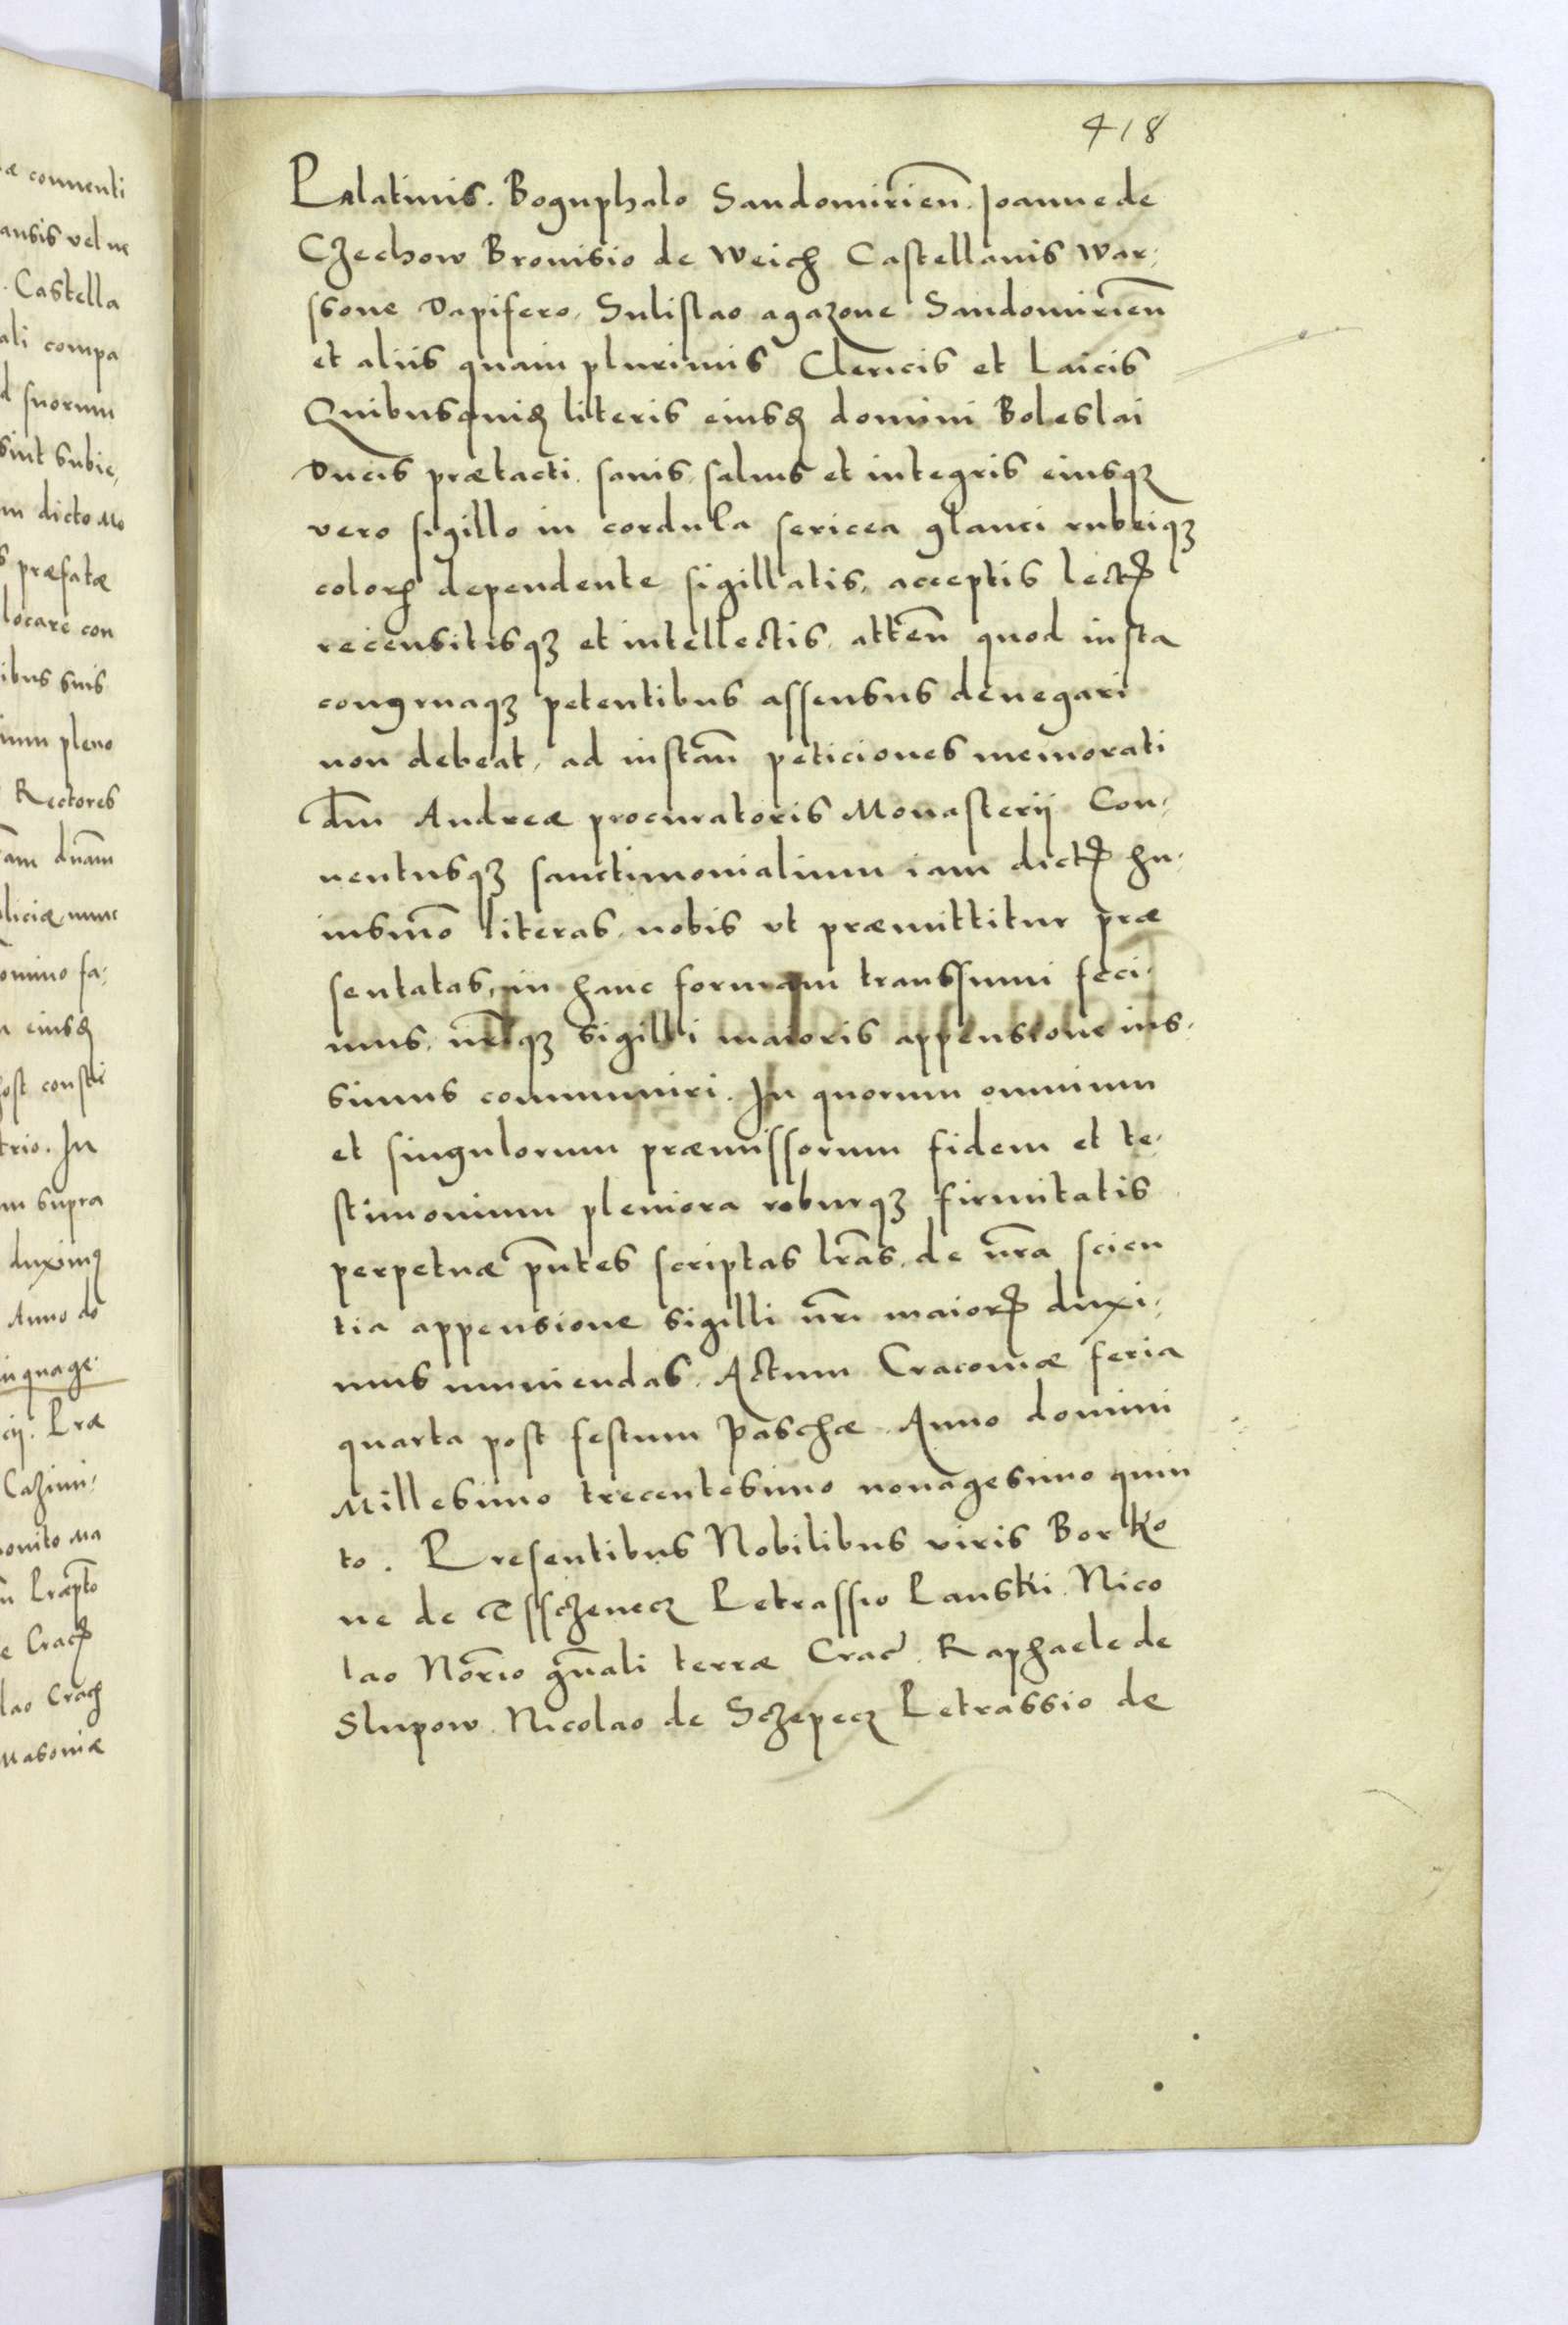 418
Palatinis. Boguphalo Sandomirien̄. Joanne de
Czechow Bronisio de Weich Castellanis War-
ssone Dapifero, Sulislao agazone Sandomirien̄
et aliis quam plurimis Clericis et Laicis
Quibusquidꝫ literis eiusdꝫ domini Boleslai
Ducis prætacti. sanis, saluis et integris eiusqꝫ
vero sigillo in cordula sericea glauci rubeiqꝫ
coloꝝ dependente sigillatis, acceptis lectꝭ
recensitisqꝫ et intellectis, atten̄ quod iusta
congruaqꝫ petentibus assensus denegari
non debeat, ad instan̄ peticiones memorati
dn̄i Andreæ procuratoris Monasterij Con-
uentusqꝫ sanctimonialium iam dictꝭ hu-
iusmōi literas, nobis vt præmittitur præ
sentatas, in hanc formam transsumi feci-
mus. nr̄iqꝫ sigilli maioris appensione ius-
simus communiri. In quorum omnium
et singulorum præmissorum fidem et te-
stimonium pleniora roburqꝫ firmitatis
perpetuæ pn̄tes scriptas lr̄as, de nr̄a scien
tia appensione sigilli nr̄i maiorꝭ duxi-
mus muniendas. Actum Cracouiæ feria
quarta post festum Paschæ. Anno domini
Millesimo trecentesimo nonagesimo quin
to. Presentibus Nobilibus viris Borko
ne de Tssczenecz Petrassio Lanski. Nico
lao Nor̄io gn̄ali terræ Crac̄. Raphaele de
Slupow. Nicolao de Sczepecz Petrassio de
æ conuenti
ansis vel ne
. Castella
ali compa
d suorum
sint subie,
m dicto Mo
s præfatæ
locare con
ibus suis
ium pleno
Rectores
am dn̄am
liciæ nunc
omino fa-
n eiusdꝫ
post consti
trio. In
m supra
duximꝰ
Anno do
inquage-
cij. Præ
Cazimi-
onito Ma
e Cracꝭ
lao Crach
Masouiæ